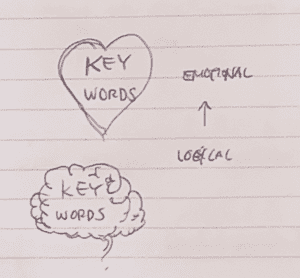 KEY
WORDS
EMOTIONAL
LOGICAL
KEY
WORDS